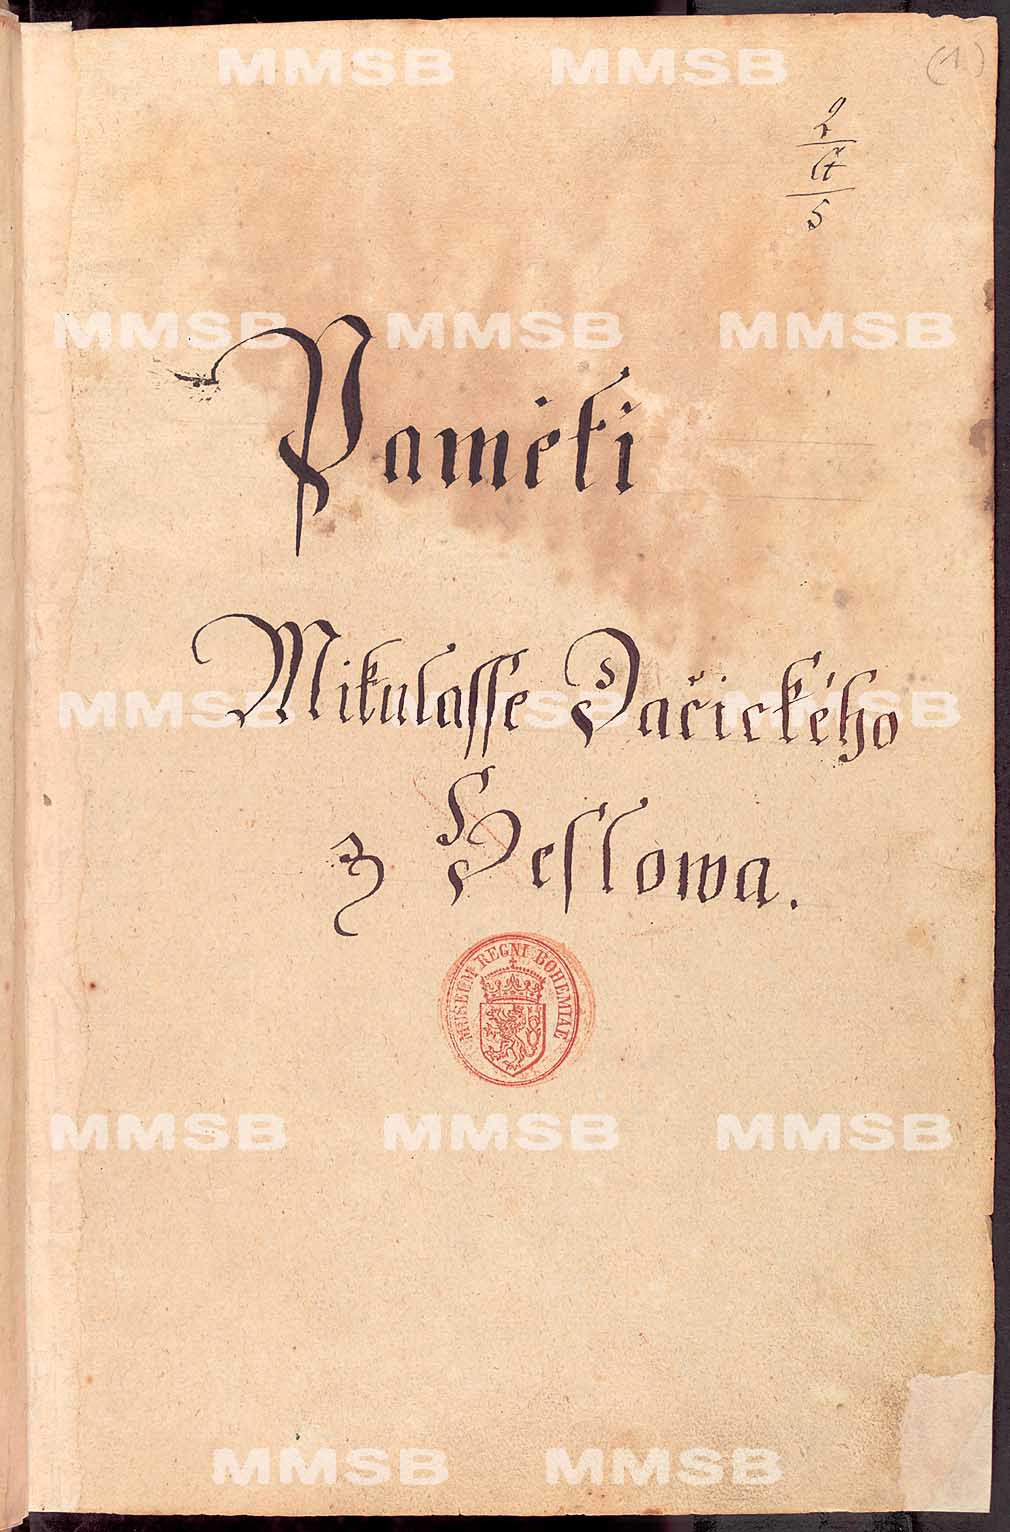 (1)
2
5
Paměti
Mikulasse Dačického
z Heslowa.
MUSEUM REGNI BOHEMIAE
MMSB MMSB
MMSB MMSB MMSB
MMSB MMSB MMSB
MMSB MMSB MMSB
MMSB MMSB